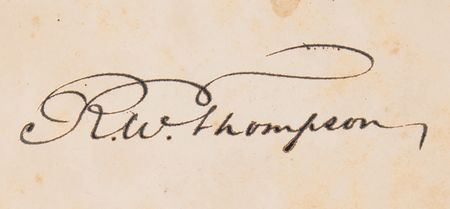 R.W. Thompson